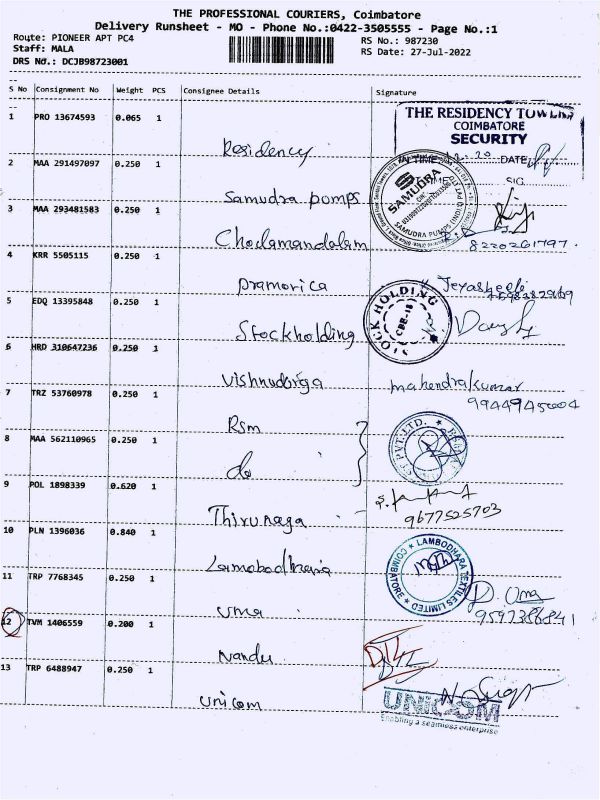 THE PROFESSIONAL COURIERS, Coimbatore
Delivery Runsheet - MO - Phone No.:0422-3505555 - Page No.:1
Route: PIONEER APT PC4
Staff: MALA
DRS No.: DCJB98723001
RS No.: 987230
RS Date: 27-Jul-2022
S No Consignment No Weight PCS Consignee Details Signature
1 PRO 13674593 0.065 1 Residency
THE RESIDENCY TOWERS
COIMBATORE
SECURITY
TIME DATE
SIG
2 MAA 291497097 0.250 1 Samudra pumps
SAMUDRA
SAMUDRA PUMPS (INDIA) PVT LTD
3 MAA 293481583 0.250 1 Cholamandalam
8220261797.
4 KRR 5505115 0.250 1 pramorica
5 EDQ 13395848 0.250 1 Stockholding
STOCK HOLDING
CBR-18
6 HRD 310647236 0.250 1 Vishnudurga mahendrakumar
9944945004
7 TRZ 53760978 0.250 1 Rsm
8 MAA 562110965 0.250 1 do
PVT.LTD.
9 POL 1898339 0.620 1 Thirunaga
9677525703
10 PLN 1396036 0.840 1 Lamabodhara
LAMBODHARA TEXTILES LIMITED
COIMBATORE
11 TRP 7768345 0.250 1 uma D. Uma
9597386841
12 TVM 1406559 0.200 1 Nandu
13 TRP 6488947 0.250 1 unicom
UNICOM
Enabling a seamless enterprise